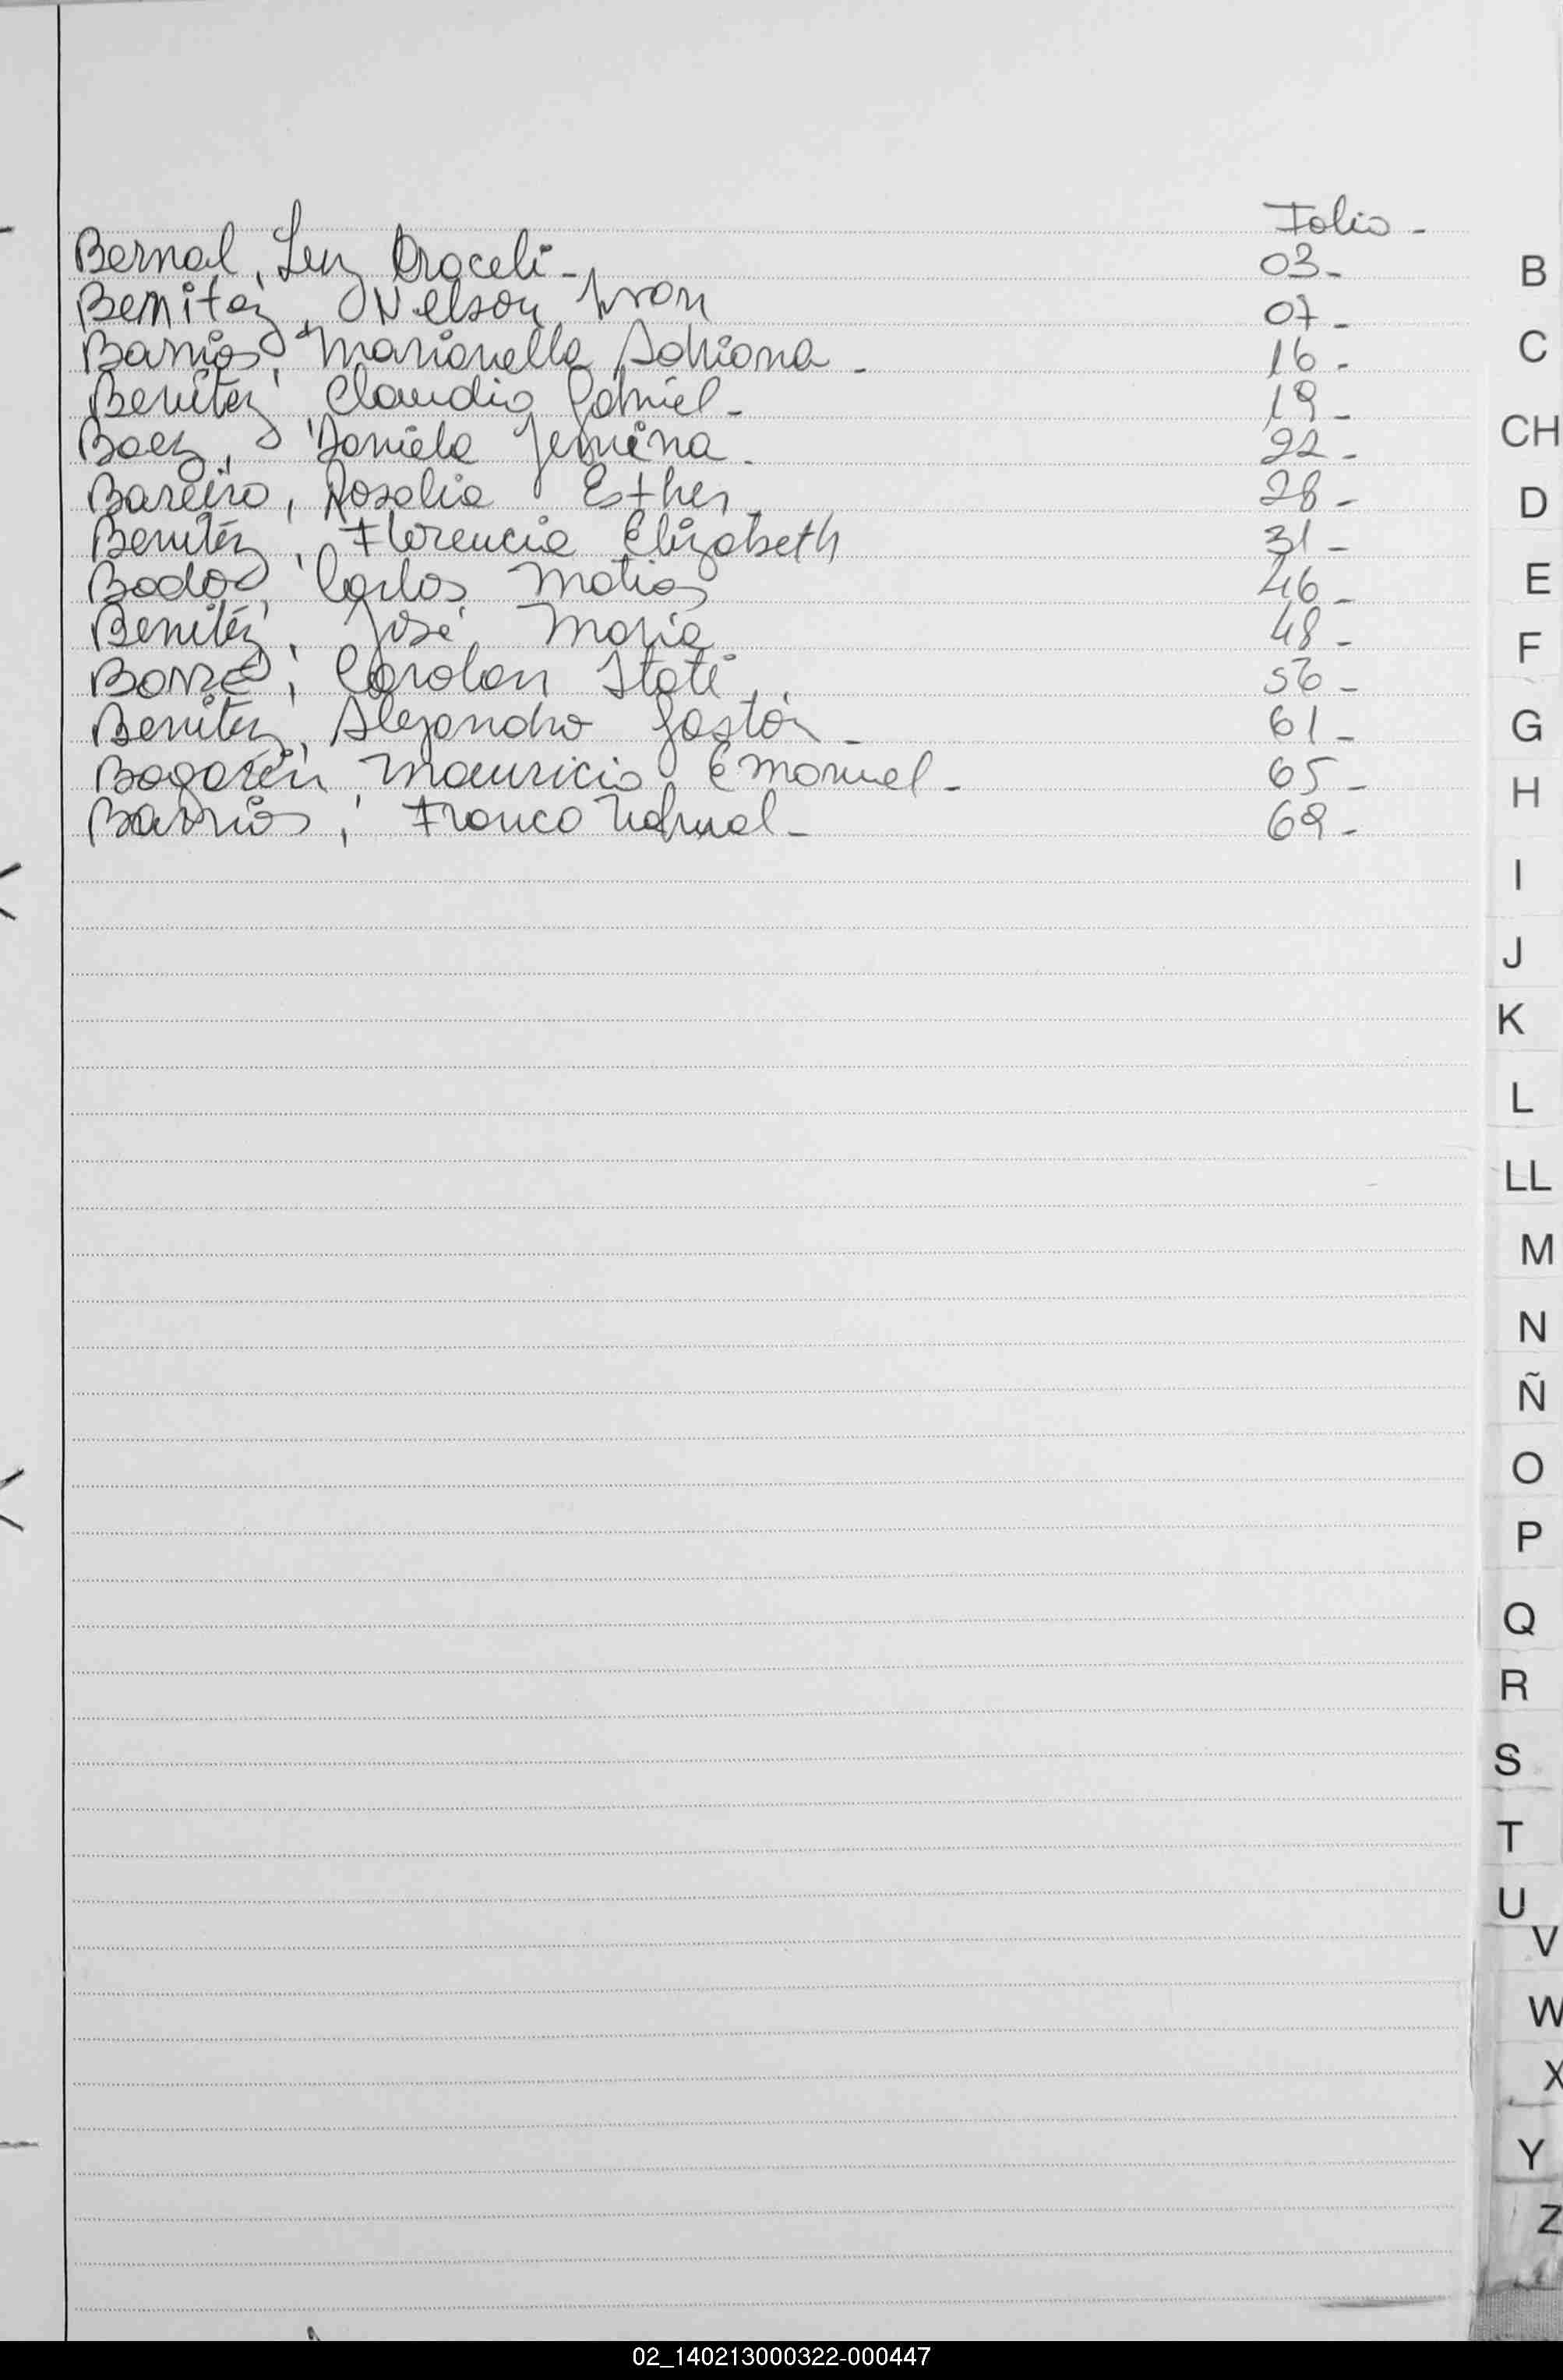 Folio -
Bernal, Luz Araceli - 03 -
Benitez, Nelson Ivan 07 -
Barrios, Marianella Adriana - 16 -
Benitez, Claudio Gabriel - 19 -
Baez, Daniela Jemina - 22 -
Bareiro, Rosalia Esther 28 -
Benitéz, Florencia Elizabeth 31 -
Carlos Matias 46 -
Benitéz, José Maria 48 -
Itatí 56 -
Benitez, Alejandro Gastón - 61 -
Bogarín Mauricio Emanuel - 65 -
Barrios, Franco Nahuel - 69 -
B
C
CH
D
E
F
G
H
I
J
K
L
LL
M
N
Ñ
O
P
Q
R
S
T
U
V
W
X
Y
Z
02_140213000322-000447